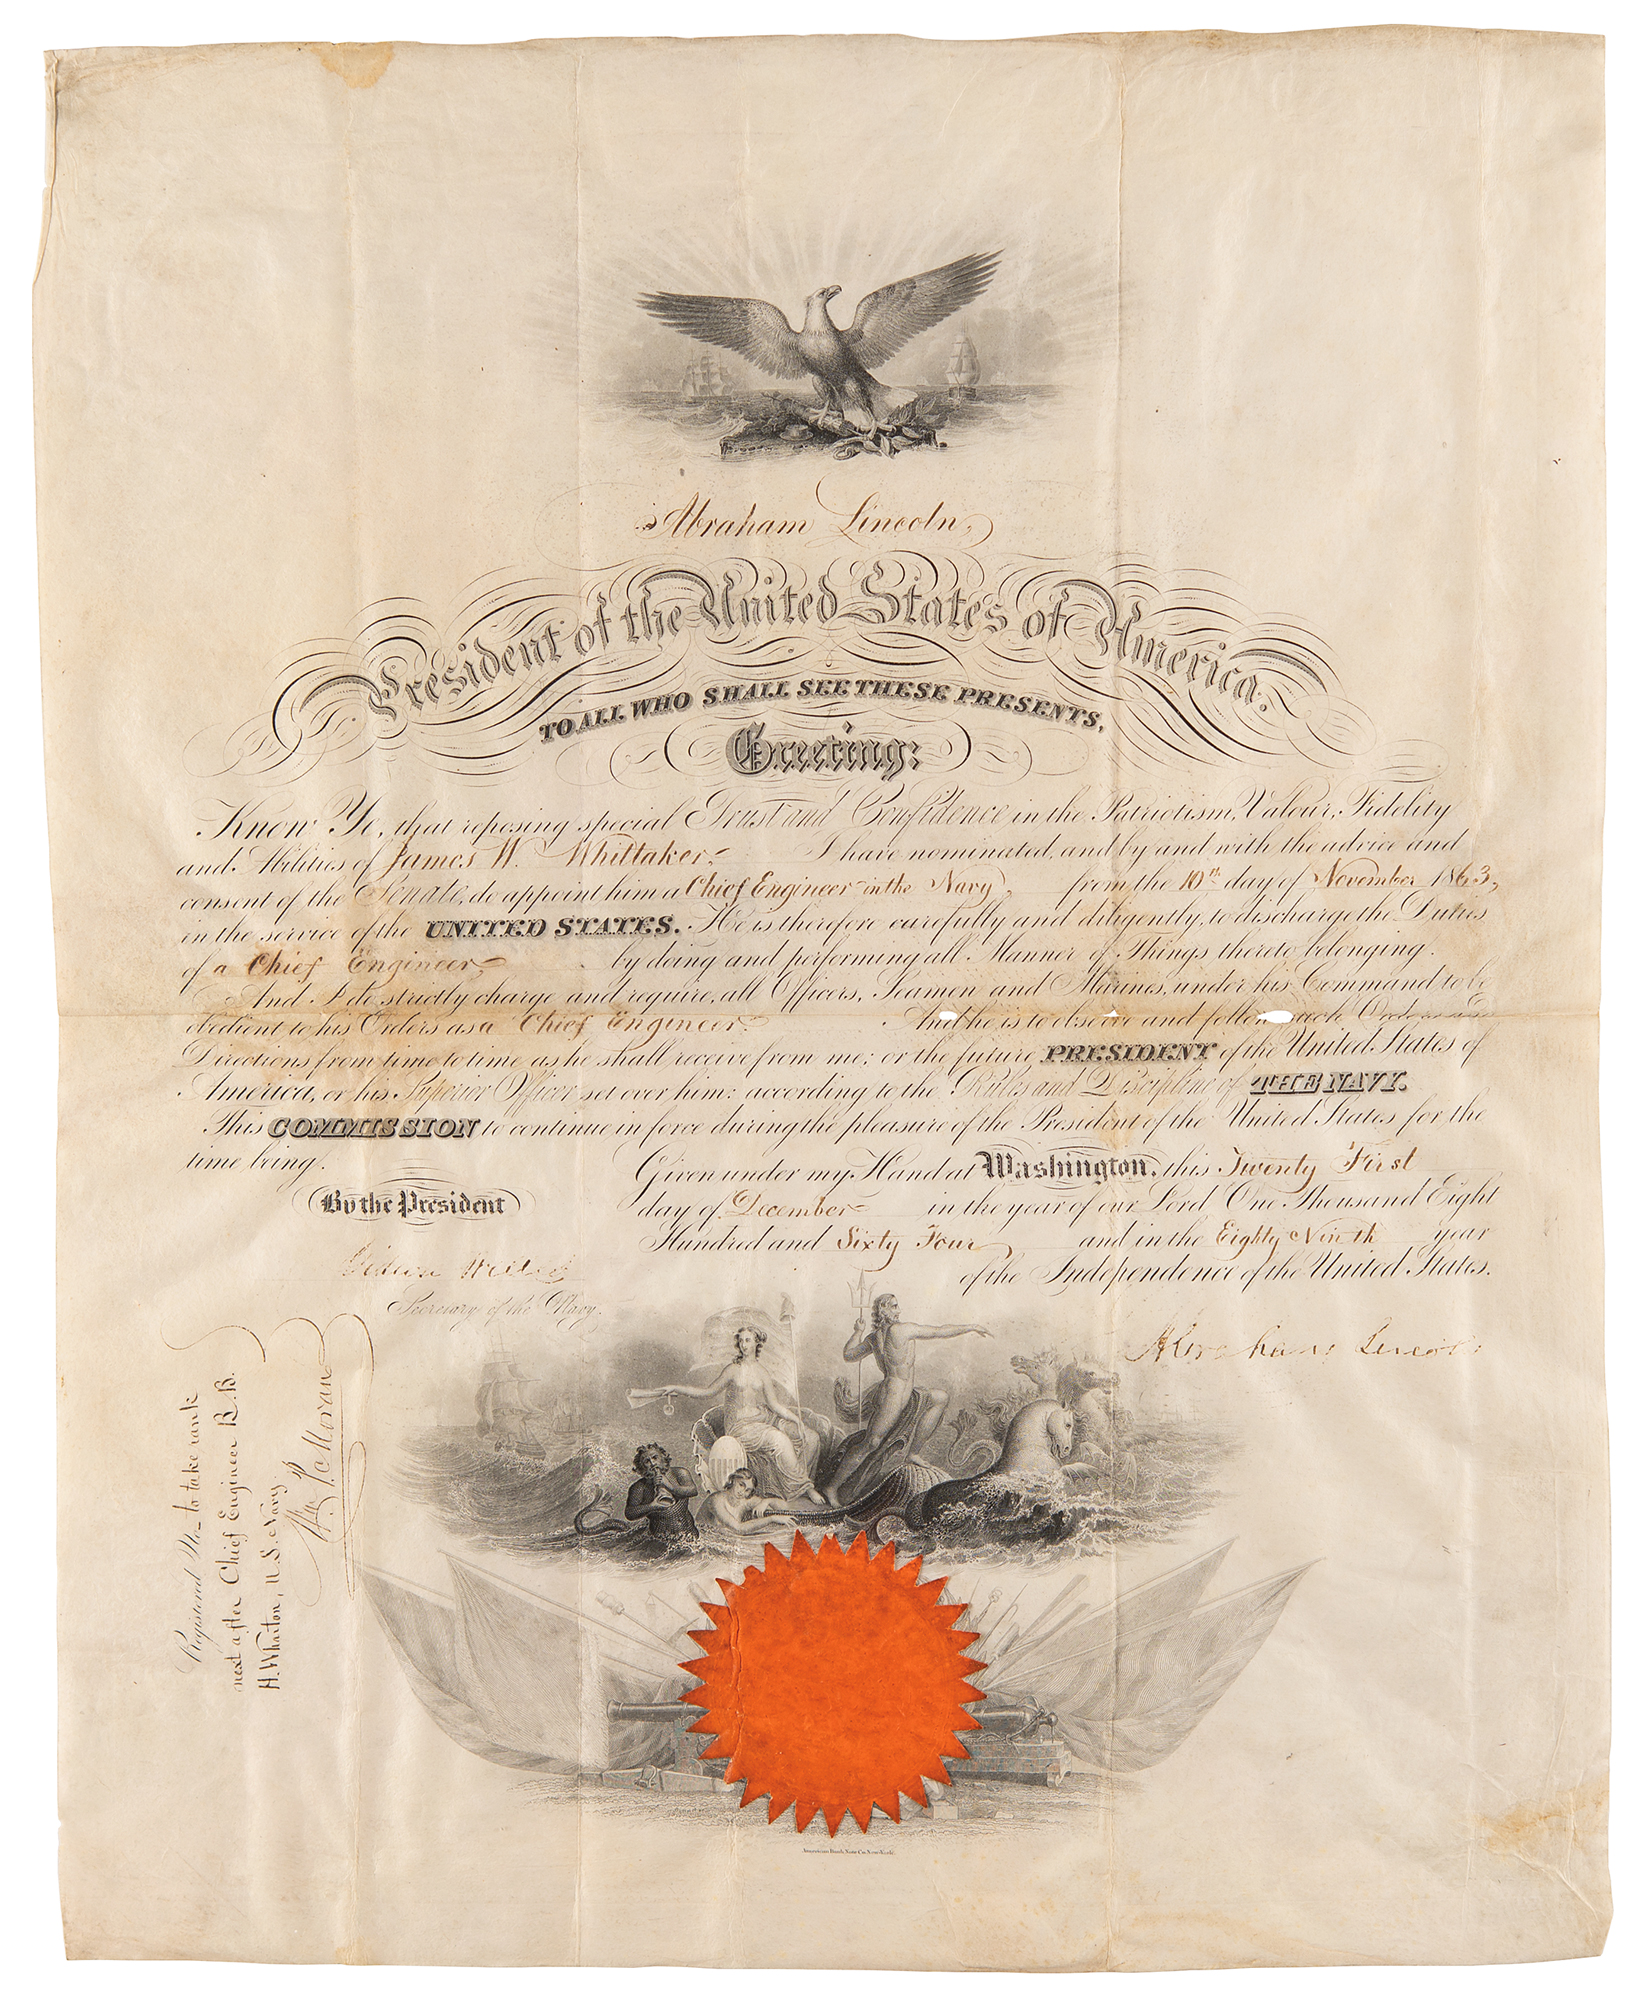 Abraham Lincoln,
President of the United States of America.
TO ALL WHO SHALL SEE THESE PRESENTS,
Greeting:
Know Ye, that reposing special Trust and Confidence in the Patriotism, Valour, Fidelity
and Abilities of James W. Whittaker, I have nominated, and by and with the advice and
consent of the Senate, do appoint him a Chief Engineer in the Navy, from the 10th day of November 1863,
in the service of the UNITED STATES. He is therefore carefully and diligently, to discharge the Duties
of a Chief Engineer, by doing and performing all Manner of Things thereto belonging.
And I do strictly charge and require, all Officers, Seamen and Marines, under his Command to be
obedient to his Orders as a Chief Engineer. And he is to observe and follow such Orders and
Directions from time to time as he shall receive from me; or the future PRESIDENT of the United States of
America, or his Superior Officer set over him; according to the Rules and Discipline of THE NAVY.
This COMMISSION to continue in force during the pleasure of the President of the United States for the
time being.
Given under my Hand at Washington, this Twenty First
day of December in the year of our Lord One Thousand Eight
Hundred and Sixty Four, and in the Eighty Ninth year
of the Independence of the United States.
By the President
Gideon Welles
Secretary of the Navy.
Abraham Lincoln
Registered to take rank
next after Chief Engineer B.B.
H. Wharton, U.S. Navy.
Wm P. Moran
American Bank Note Co. New-York.